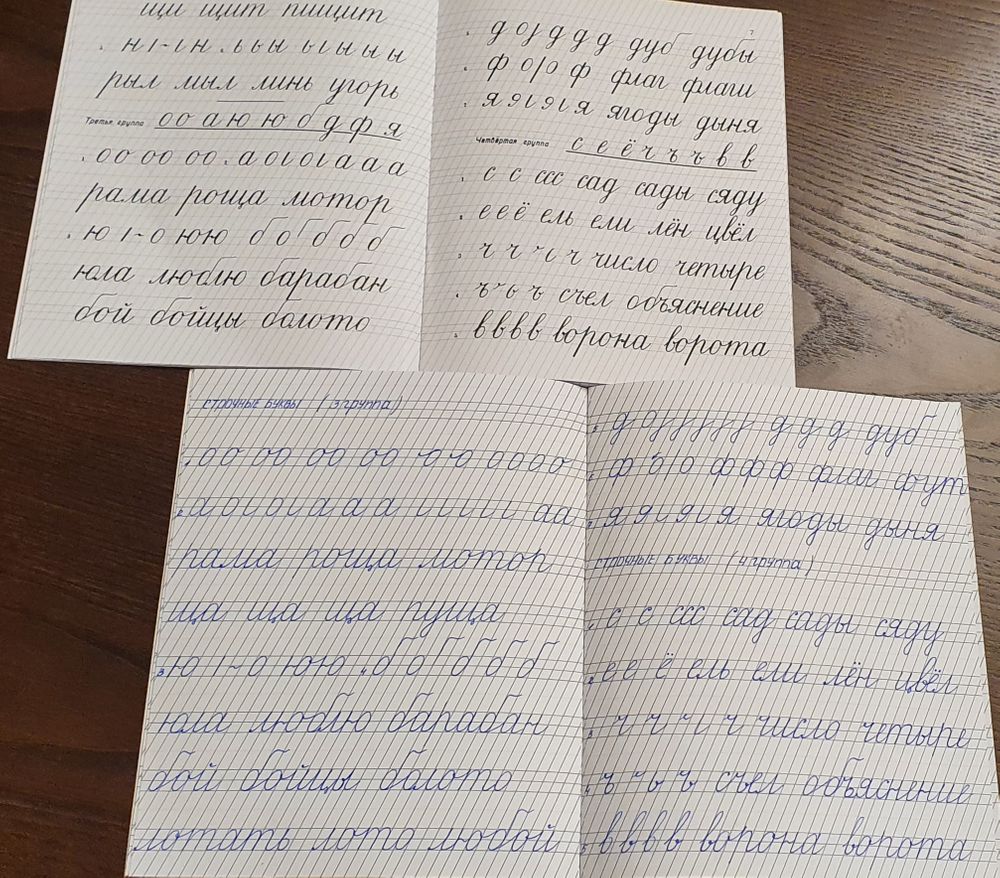 щи щит пищит
н ı-ı н . ь ы ы ы ы ы
рыл мыл линь угорь
Третья группа о о а ю ю б д ф я
. оо оо оо . а оı оı а а а
рама роща мотор
ю ı-о юю б о б б б
юла люблю барабан
бой бойцы болото
7
д оj д д д дуб дубы
ф оıо ф флаг флаги
я эı эı я ягоды дыня
Четвёртая группа с е ё ч ъ ъ в в
с с ссс сад сады сяду
е е ё ель ели лён цвёл
ч ч ı ч число четыре
ъ ь ъ съел объяснение
вввв ворона ворота
СТРОЧНЫЕ БУКВЫ (3 группа)
. оо оо оо оо о-о оооо
а оı оı а а а ı ı ı ı ı аа
рама роща мотор
ща ща ща пуща
3 ю ı~о юю . б о б б б б
юла люблю барабан
бой бойцы болото
лотать лото любой
д оj j j j j д д д дуб
ф о о ф ф ф флаг фут
я эı эı я ягоды дыня
СТРОЧНЫЕ БУКВЫ (4 группа)
с с ссс сад сады сяду
е е ё ель ели лён цвёл
ч ч ı ч число четыре
ъ ь ъ съел объяснение
5 вввв ворона ворота